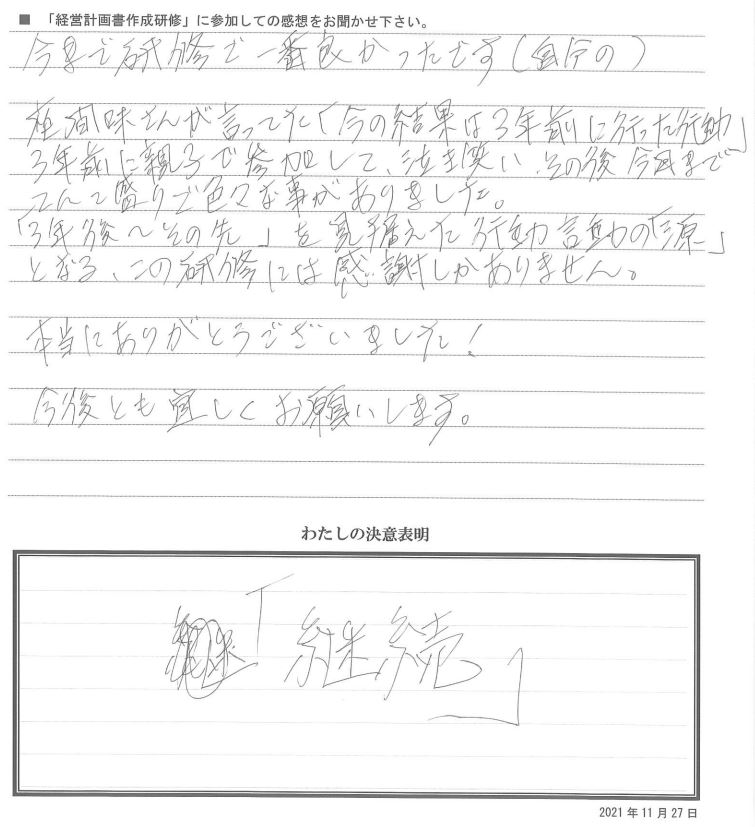 ■ 「経営計画書作成研修」に参加しての感想をお聞かせ下さい。
今まで研修で一番良かったです(自分の)
座間味さんが言ってた「今の結果は3年前に行った行動」
3年前に親子で参加して、泣き笑い、その後 今日まで
てんこ盛りで色々な事がありました。
「3年後〜その先」を見据えた行動言動の「源」
となる、この研修には感謝しかありません。
本当にありがとうございました!
今後とも宜しくお願いします。
わたしの決意表明
「継続」
2021年11月27日